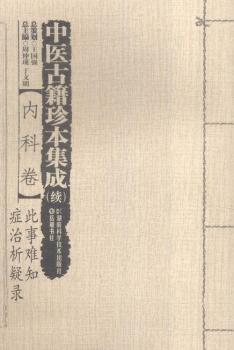 总策划◎王国强
总主编◎周仲瑛 于文明
中医古籍珍本集成
(续)
【内科卷】
此事难知
症治析疑录
湖南科学技术出版社
岳麓书社